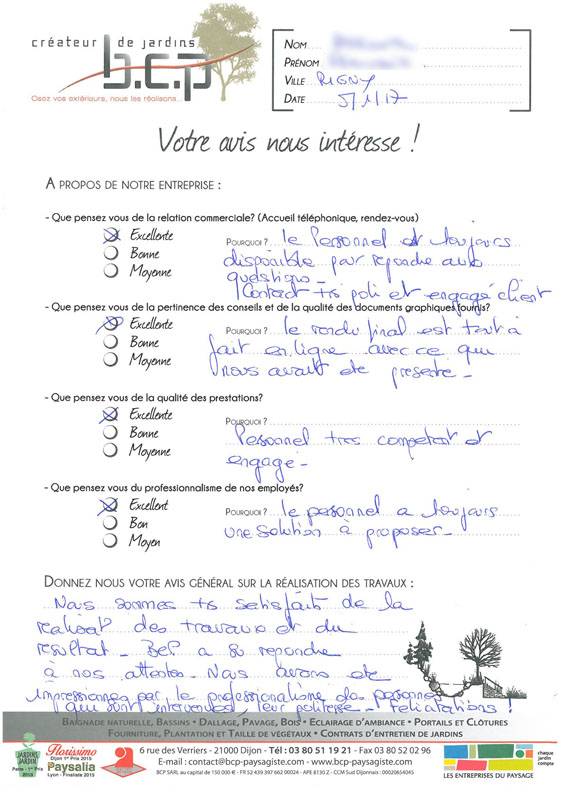 créateur de jardins
b.c.p
Osez vos extérieurs, nous les réalisons...
NOM
PRÉNOM
VILLE RIGNY
DATE 5/1/17
Votre avis nous intéresse !
A PROPOS DE NOTRE ENTREPRISE :
- Que pensez vous de la relation commerciale? (Accueil téléphonique, rendez-vous)
Excellente
Bonne
Moyenne
POURQUOI ? le Personnel est toujours
disponible par repondre aux
questions -
Contact trs poli et engagé client
- Que pensez vous de la pertinence des conseils et de la qualité des documents graphiques fournis?
Excellente
Bonne
Moyenne
POURQUOI ? le rendu final est tout à
fait en ligne avec ce qui
nous avait ete presente -
- Que pensez vous de la qualité des prestations?
Excellente
Bonne
Moyenne
POURQUOI ?
Personnel tres competent et
engagé -
- Que pensez vous du professionnalisme de nos employés?
Excellent
Bon
Moyen
POURQUOI ? le personnel a toujours
une solution à proposer -
DONNEZ NOUS VOTRE AVIS GÉNÉRAL SUR LA RÉALISATION DES TRAVAUX :
Nous sommes trs satisfait de la
realisat° des travaux et du
resultat - BCP a su repondre
à nos attentes - Nous avons ete
impressionnes par le professionalisme des personnes
qui sont intervenues leur politesse - Felicitations !
BAIGNADE NATURELLE, BASSINS • DALLAGE, PAVAGE, BOIS • ECLAIRAGE D'AMBIANCE • PORTAILS ET CLÔTURES
FOURNITURE, PLANTATION ET TAILLE DE VÉGÉTAUX • CONTRATS D'ENTRETIEN DE JARDINS
JARDINS JARDIN
Paris - 1er Prix
2013
Florissimo
Dijon 1er Prix 2015
Paysalia
Lyon - Finaliste 2015
6 rue des Verriers - 21000 Dijon - Tél : 03 80 51 19 21 - Fax 03 80 52 02 96
E-mail : contact@bcp-paysagiste.com - www.bcp-paysagiste.com
BCP SARL au capital de 150 000 € - FR 52 439 397 662 00024 - APE 8130 Z - CCM Sud Dijonnais : 00020654045
LES ENTREPRISES DU PAYSAGE
chaque
jardin
compte